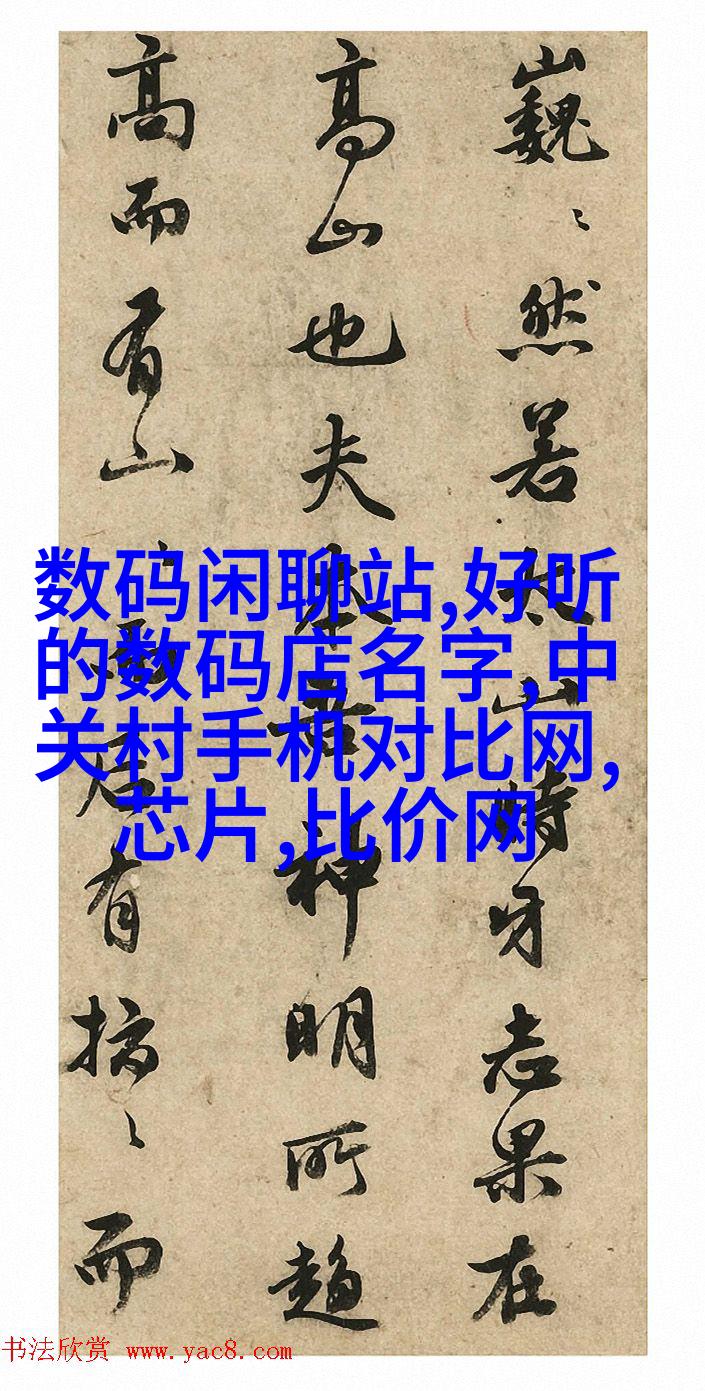 巍〻然若太山時曰志果在
高山也夫木音神明所趨
高而有山
居有搞〻而
数码闲聊站,好听
的数码店名字,中
关村手机对比网,
芯片,比价网
书法欣赏 www.yac8.com